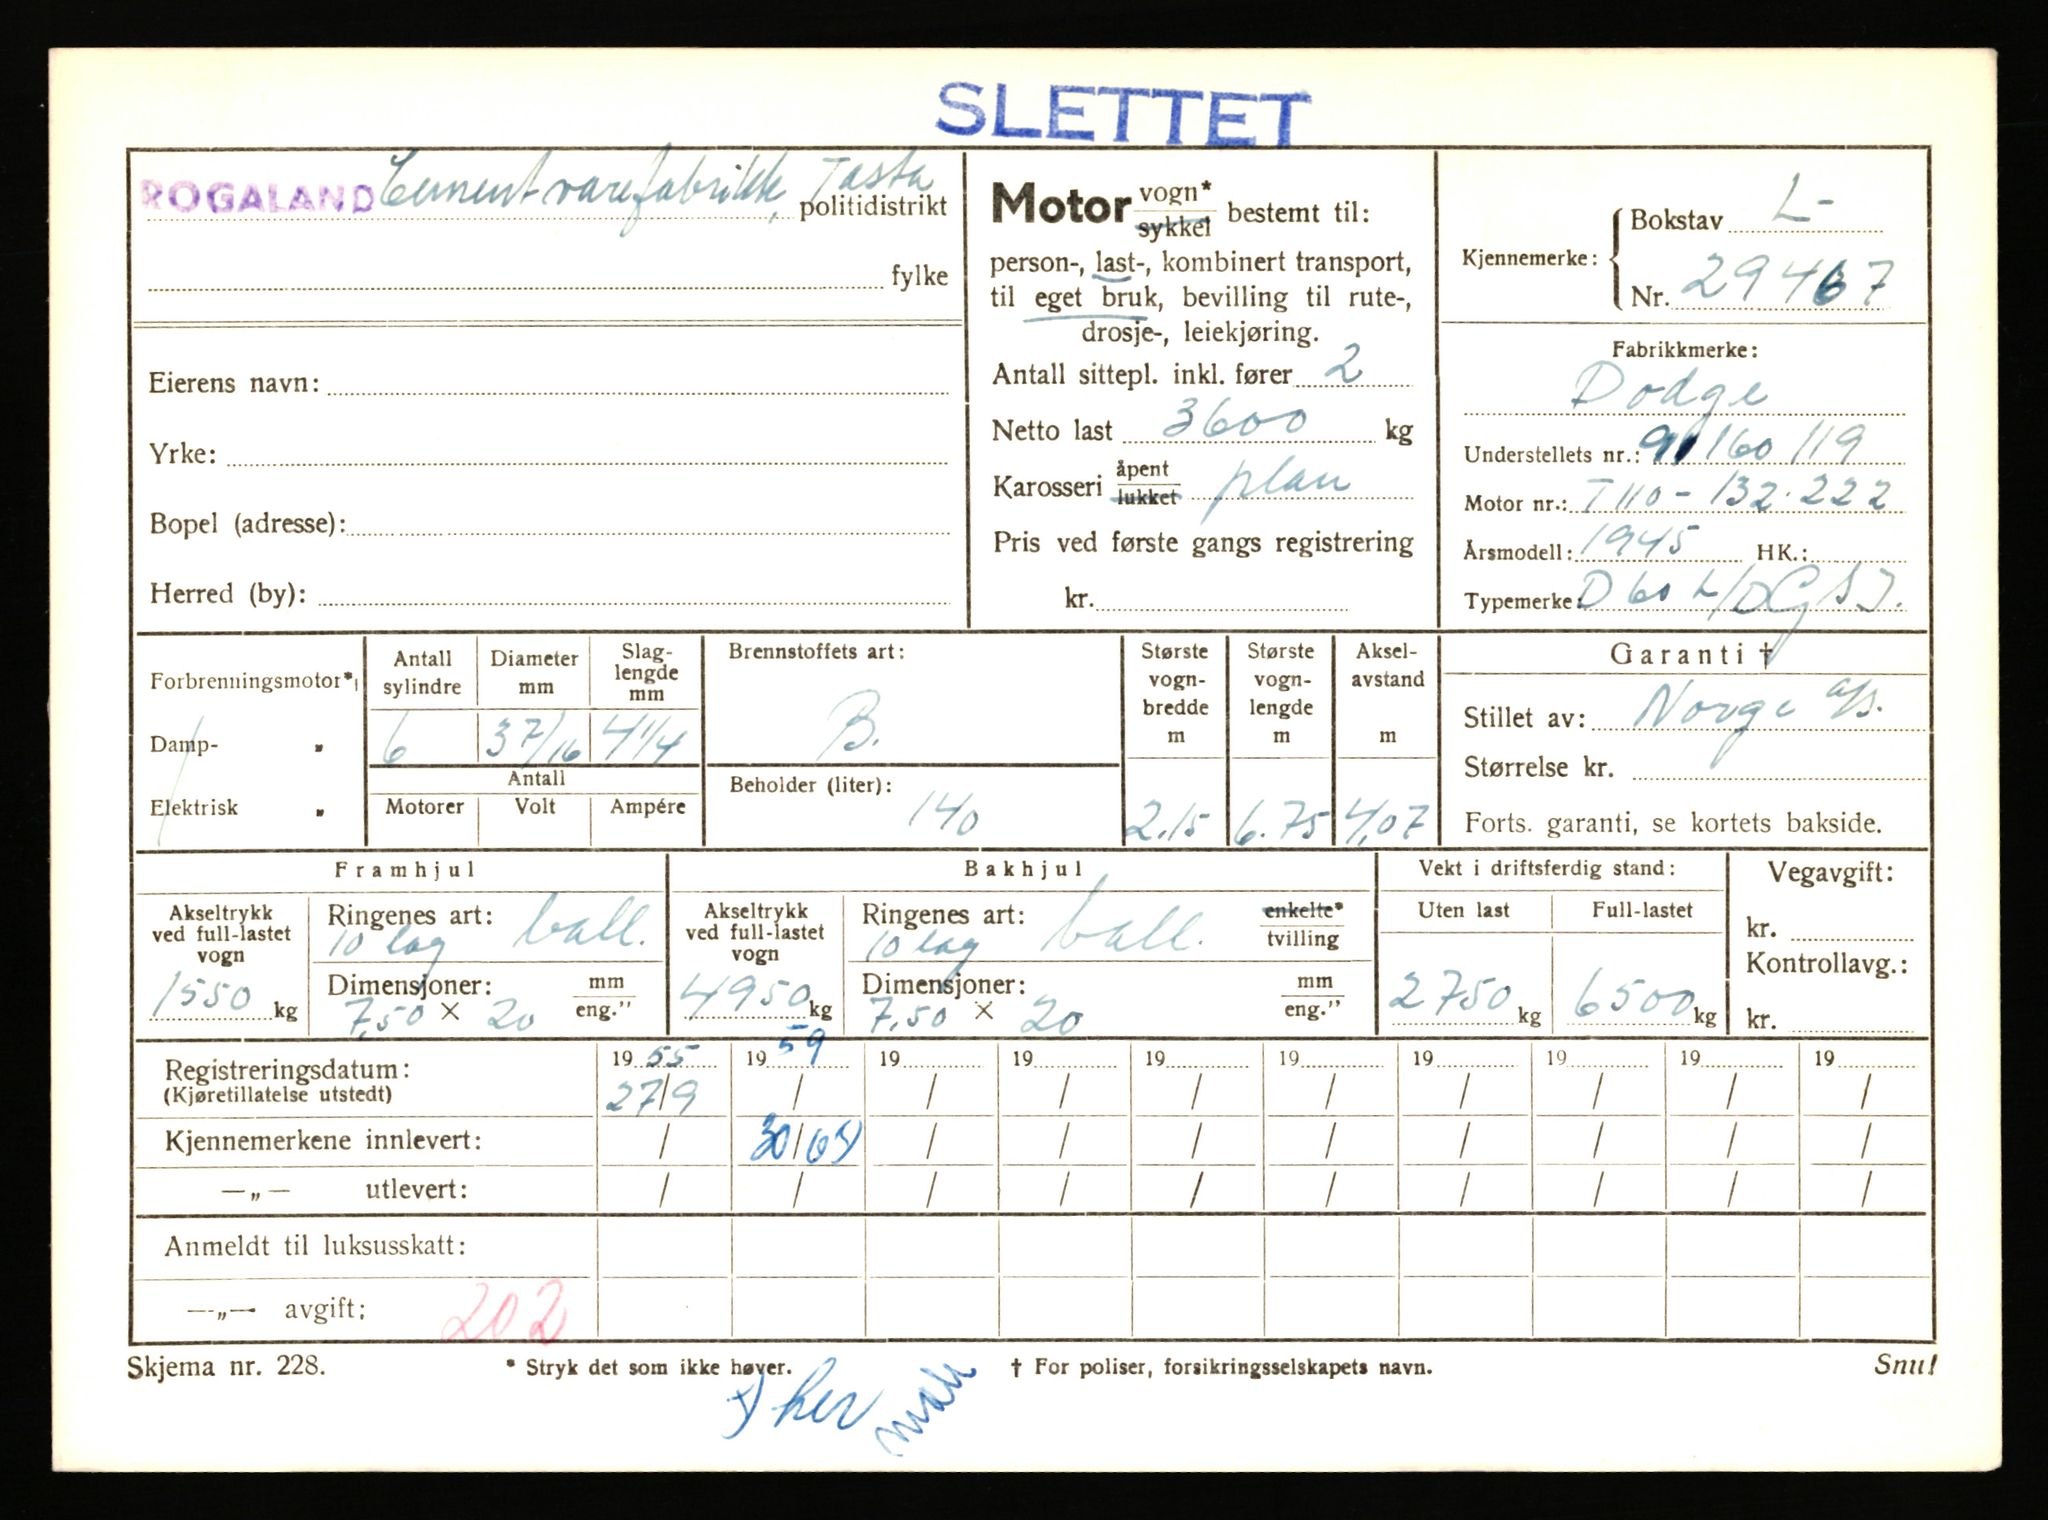 SLETTET
ROGALAND Cementvarefabrikk, Tasta politidistrikt
fylke
Eierens navn:
Yrke:
Bopel (adresse):
Herred (by):
Motor vogn* sykkel bestemt til:
person-, last-, kombinert transport,
til eget bruk, bevilling til rute-,
drosje-, leiekjøring.
Antall sittepl. inkl. fører 2
Netto last 3600 kg
Karosseri åpent lukket plan
Pris ved første gangs registrering
kr.
Kjennemerke: Bokstav L-
Nr. 29467
Fabrikkmerke:
Dodge
Understellets nr.: 91160119
Motor nr.: T110-132.222
Årsmodell: 1945 HK.:
Typemerke: D60 L/DG
Forbrenningsmotor*
Damp- „
Elektrisk „
Antall sylindre 6
Diameter mm 37/16
Slag-lengde mm 41/4
Antall
Motorer Volt Ampére
Brennstoffets art:
B.
Beholder (liter):
140
Største vogn-bredde m 2.15
Største vogn-lengde m 6.75
Aksel-avstand m 4,07
Garanti †
Stillet av: Norge a/s.
Størrelse kr.
Forts. garanti, se kortets bakside.
Framhjul
Akseltrykk ved full-lastet vogn
1550 kg
Ringenes art:
10 lag ball.
Dimensjoner: mm eng."
7,50 × 20
Bakhjul
Akseltrykk ved full-lastet vogn
4950 kg
Ringenes art: enkelte* tvilling
10 lag ball.
Dimensjoner: mm eng."
7,50 × 20
Vekt i driftsferdig stand:
Uten last Full-lastet
2750 kg 6500 kg
Vegavgift:
kr.
Kontrollavg.:
kr.
Registreringsdatum: 19 55 19 59 19 19 19 19 19 19 19 19
(Kjøretillatelse utstedt) 27/9 / / / / / / / / /
Kjennemerkene innlevert: / 30/6 / / / / / / / /
—„— utlevert: / / / / / / / / / /
Anmeldt til luksusskatt:
—„— avgift: 202
Skjema nr. 228. * Stryk det som ikke høver. † For poliser, forsikringsselskapets navn. Snu!
x) her